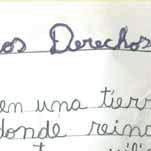 os Derechos
en una tierr
donde reina